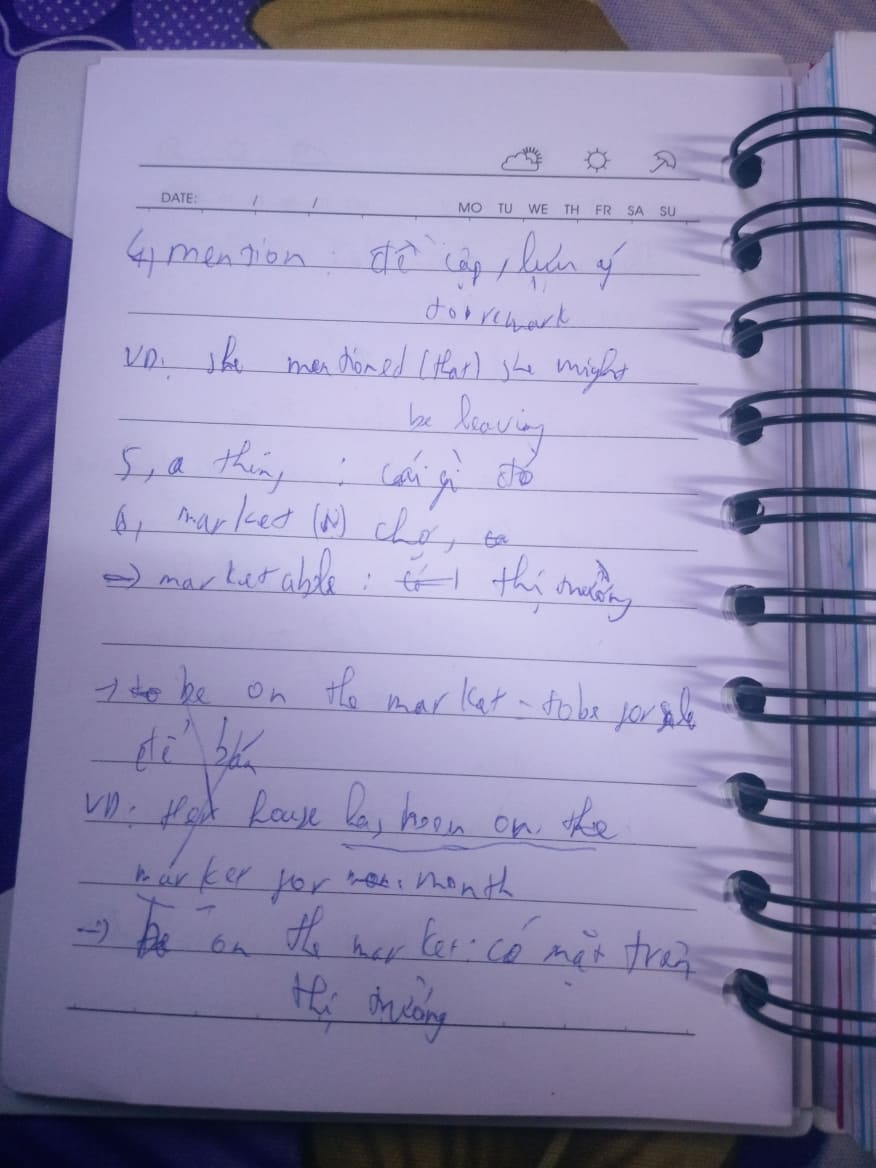 DATE: / /
MO TU WE TH FR SA SU
4, mention : đề cập, lưu ý
to remark
VD: she mentioned (that) she might
be leaving
5, a thing : cái gì đó
6, market (N) chợ,
=> marketable : thị trường
-> to be on the market - to be for sale
để bán
VD: house has been on the
market for month
-> be on the market: có mặt trên
thị trường